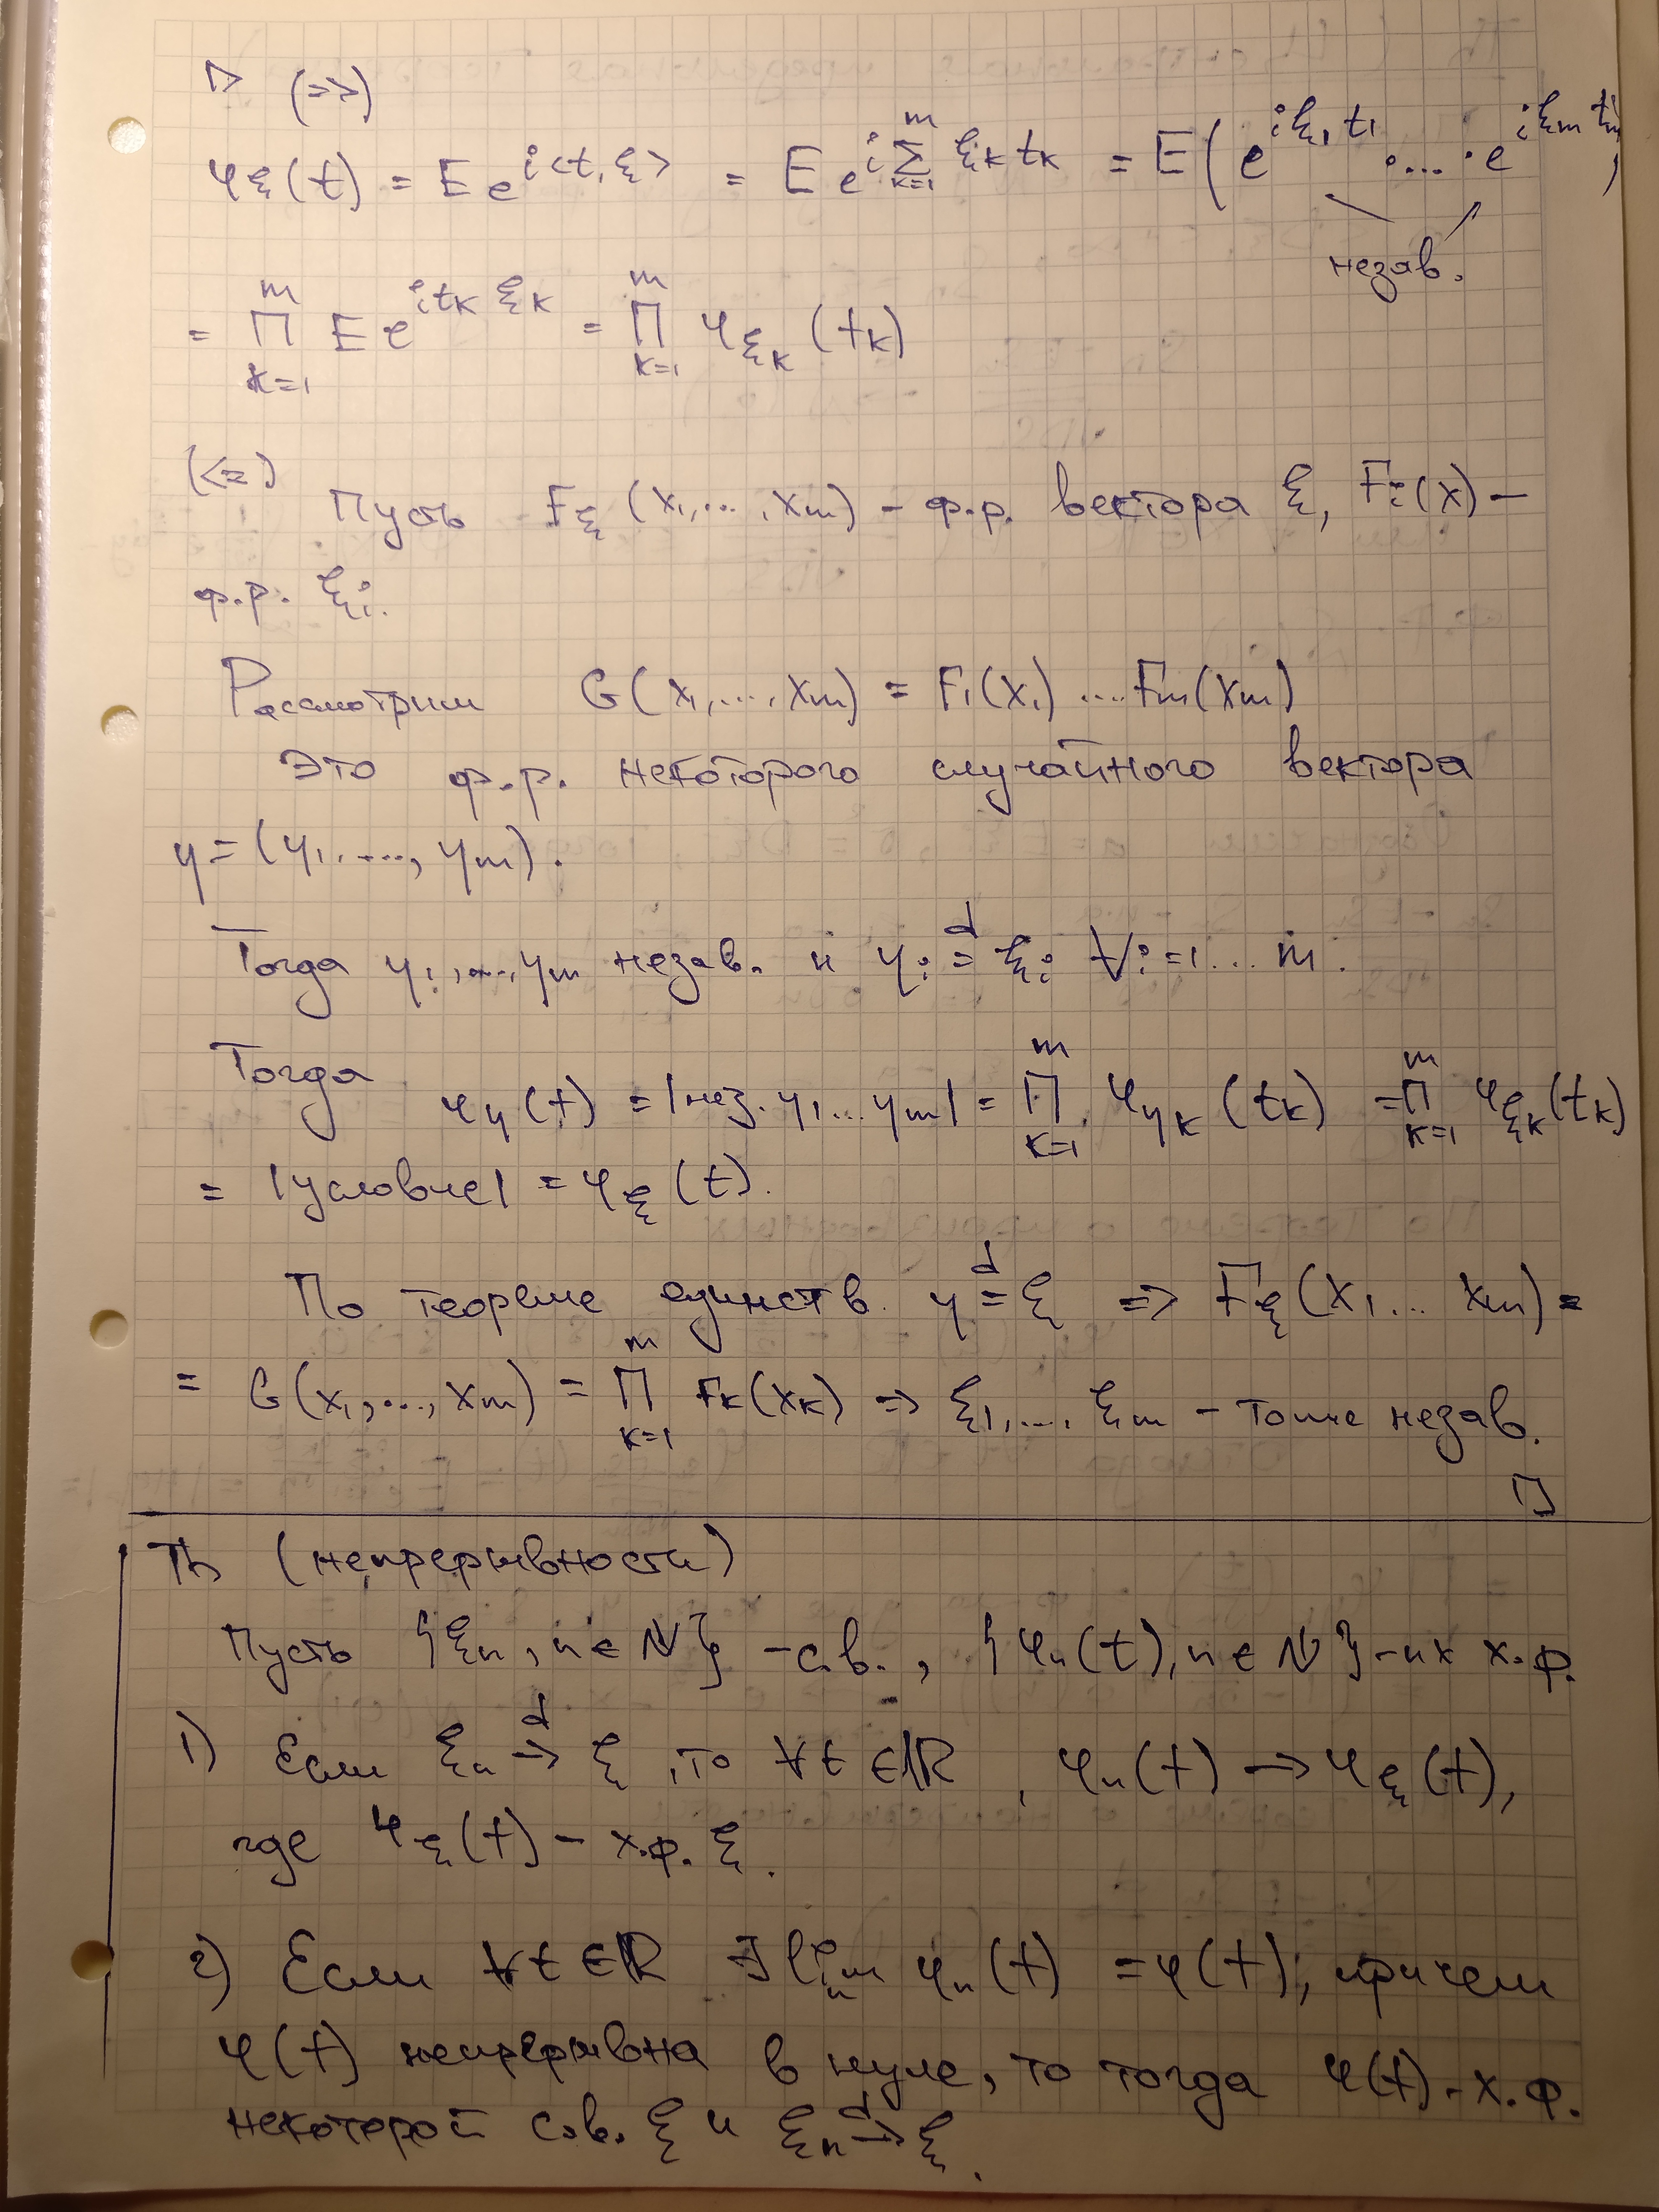 ▷ (=>)
φ_ξ(t) = E e^{i<t,ξ>} = E e^{i∑_{k=1}^{m} ξ_k t_k} = E(e^{iξ_1 t_1} · ... · e^{iξ_m t_m})
незав.
= ∏_{k=1}^{m} E e^{i t_k ξ_k} = ∏_{k=1}^{m} φ_{ξ_k}(t_k)
(<=)
Пусть F_ξ(x_1,...,x_m) - ф.р. вектора ξ, F_i(x) -
ф.р. ξ_i.
Рассмотрим G(x_1,...,x_m) = F_1(x_1) ....F_m(x_m)
Это ф.р. некоторого случайного вектора
η = (η_1,...., η_m).
Тогда η_1,...,η_m незав. и η_i =^d ξ_i ∀i=1...m.
Тогда φ_η(t) = |нез. η_1...η_m| = ∏_{k=1}^{m} φ_{η_k}(t_k) = ∏_{k=1}^{m} φ_{ξ_k}(t_k)
= |условие| = φ_ξ(t).
По теореме единств. η =^d ξ => F_ξ(x_1... x_m) =
= G(x_1,...,x_m) = ∏_{k=1}^{m} F_k(x_k) => ξ_1,..., ξ_m - тоже незав.
□
Th (непрерывности)
Пусть {ξ_n, n ∈ N} - с.в., {φ_n(t), n ∈ N} - их х.ф.
1) Если ξ_n →^d ξ, то ∀t ∈ ℝ, φ_n(t) → φ_ξ(t),
где φ_ξ(t) - х.ф. ξ.
2) Если ∀t ∈ ℝ ∃ lim_n φ_n(t) = φ(t), причем
φ(t) непрерывна в нуле, то тогда φ(t) - х.ф.
некоторой с.в. ξ и ξ_n →^d ξ.